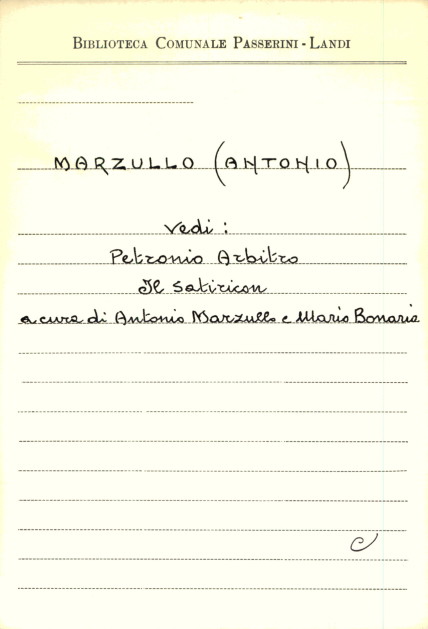 BIBLIOTECA COMUNALE PASSERINI - LANDI
MARZULLO (ANTONIO)
Vedi :
Petronio Arbitro
Il Satiricon
a cura di Antonio Marzullo e Mario Bonaria
C